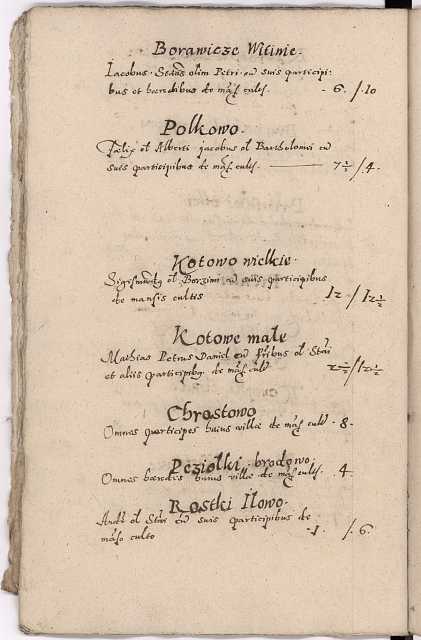 Borawicze Mtinie.
Iacobus. olim Petri. cū suis participi:
bus et hæredibus de māſ cultſ. - 6. /. 10
Polkowo.
Fælix ol Alberti jacobus ol Bartholomei cū
suis participibus de māſ cultſ. 7½ /. 4.
Kotowo wielkie.
ol Borzim cū suis participibus
de mansis cultis 12 / 12½
Kotowo małe
Mathias Petrus Daniel cū ol
et aliis participibq de māſ cultſ 2½ / 12½
Chrostowo
Omnes participes huius villæ de māſ cultſ - 8 -
Peziołki brodowo.
Omnes hæredes huius villæ de māſ cultſ. 4.
Rostki Ilowo.
ol cū suis participibus de
māſo culto -1. /. 6.